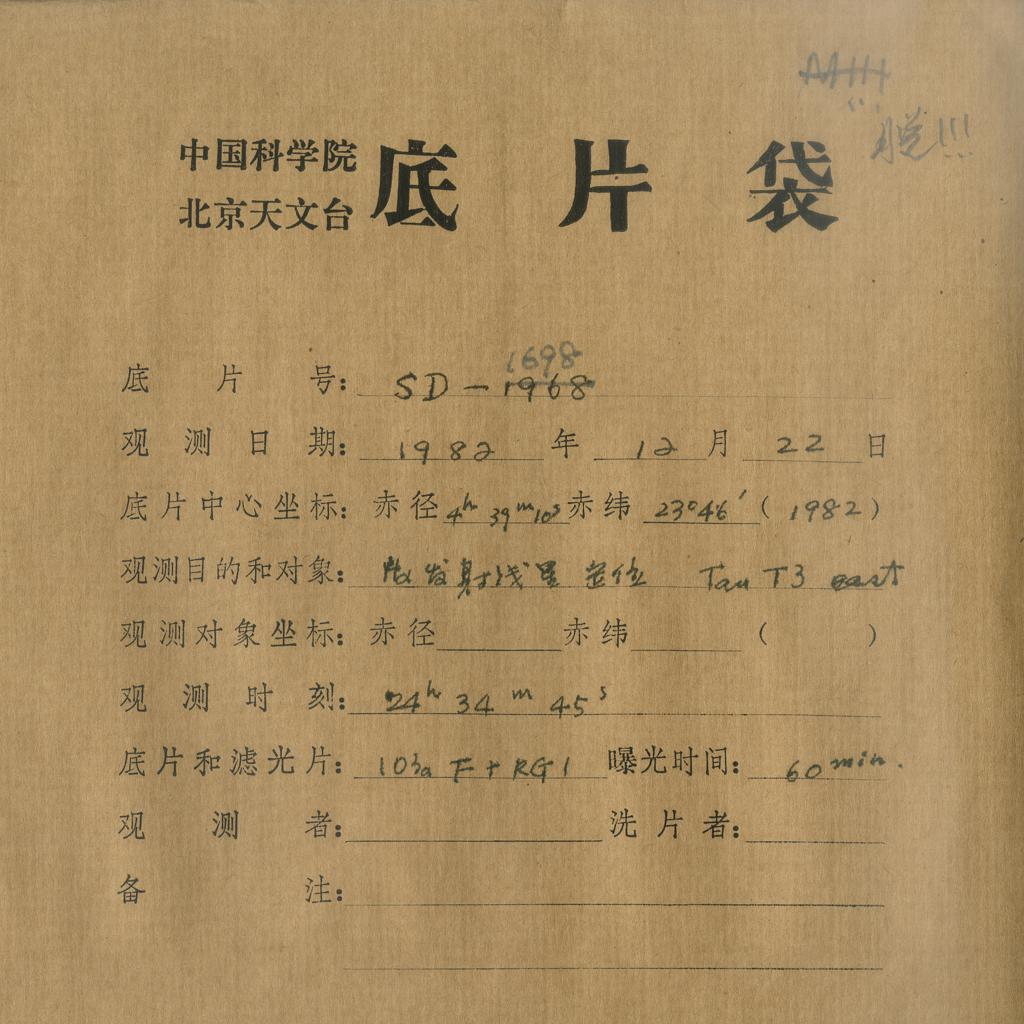 脱!!!
中国科学院
北京天文台
底片袋
1698
底片号: SD-1968
观测日期: 1982年12月22日
底片中心坐标: 赤径4h 39m 10s赤纬 23°46′ (1982)
观测目的和对象: 发射线星定位 Tau T3 east
观测对象坐标: 赤径 赤纬 ( )
观测时刻: 24h 34m 45s
底片和滤光片: 103a F + RG1 曝光时间: 60 min.
观测者: 洗片者:
备注: